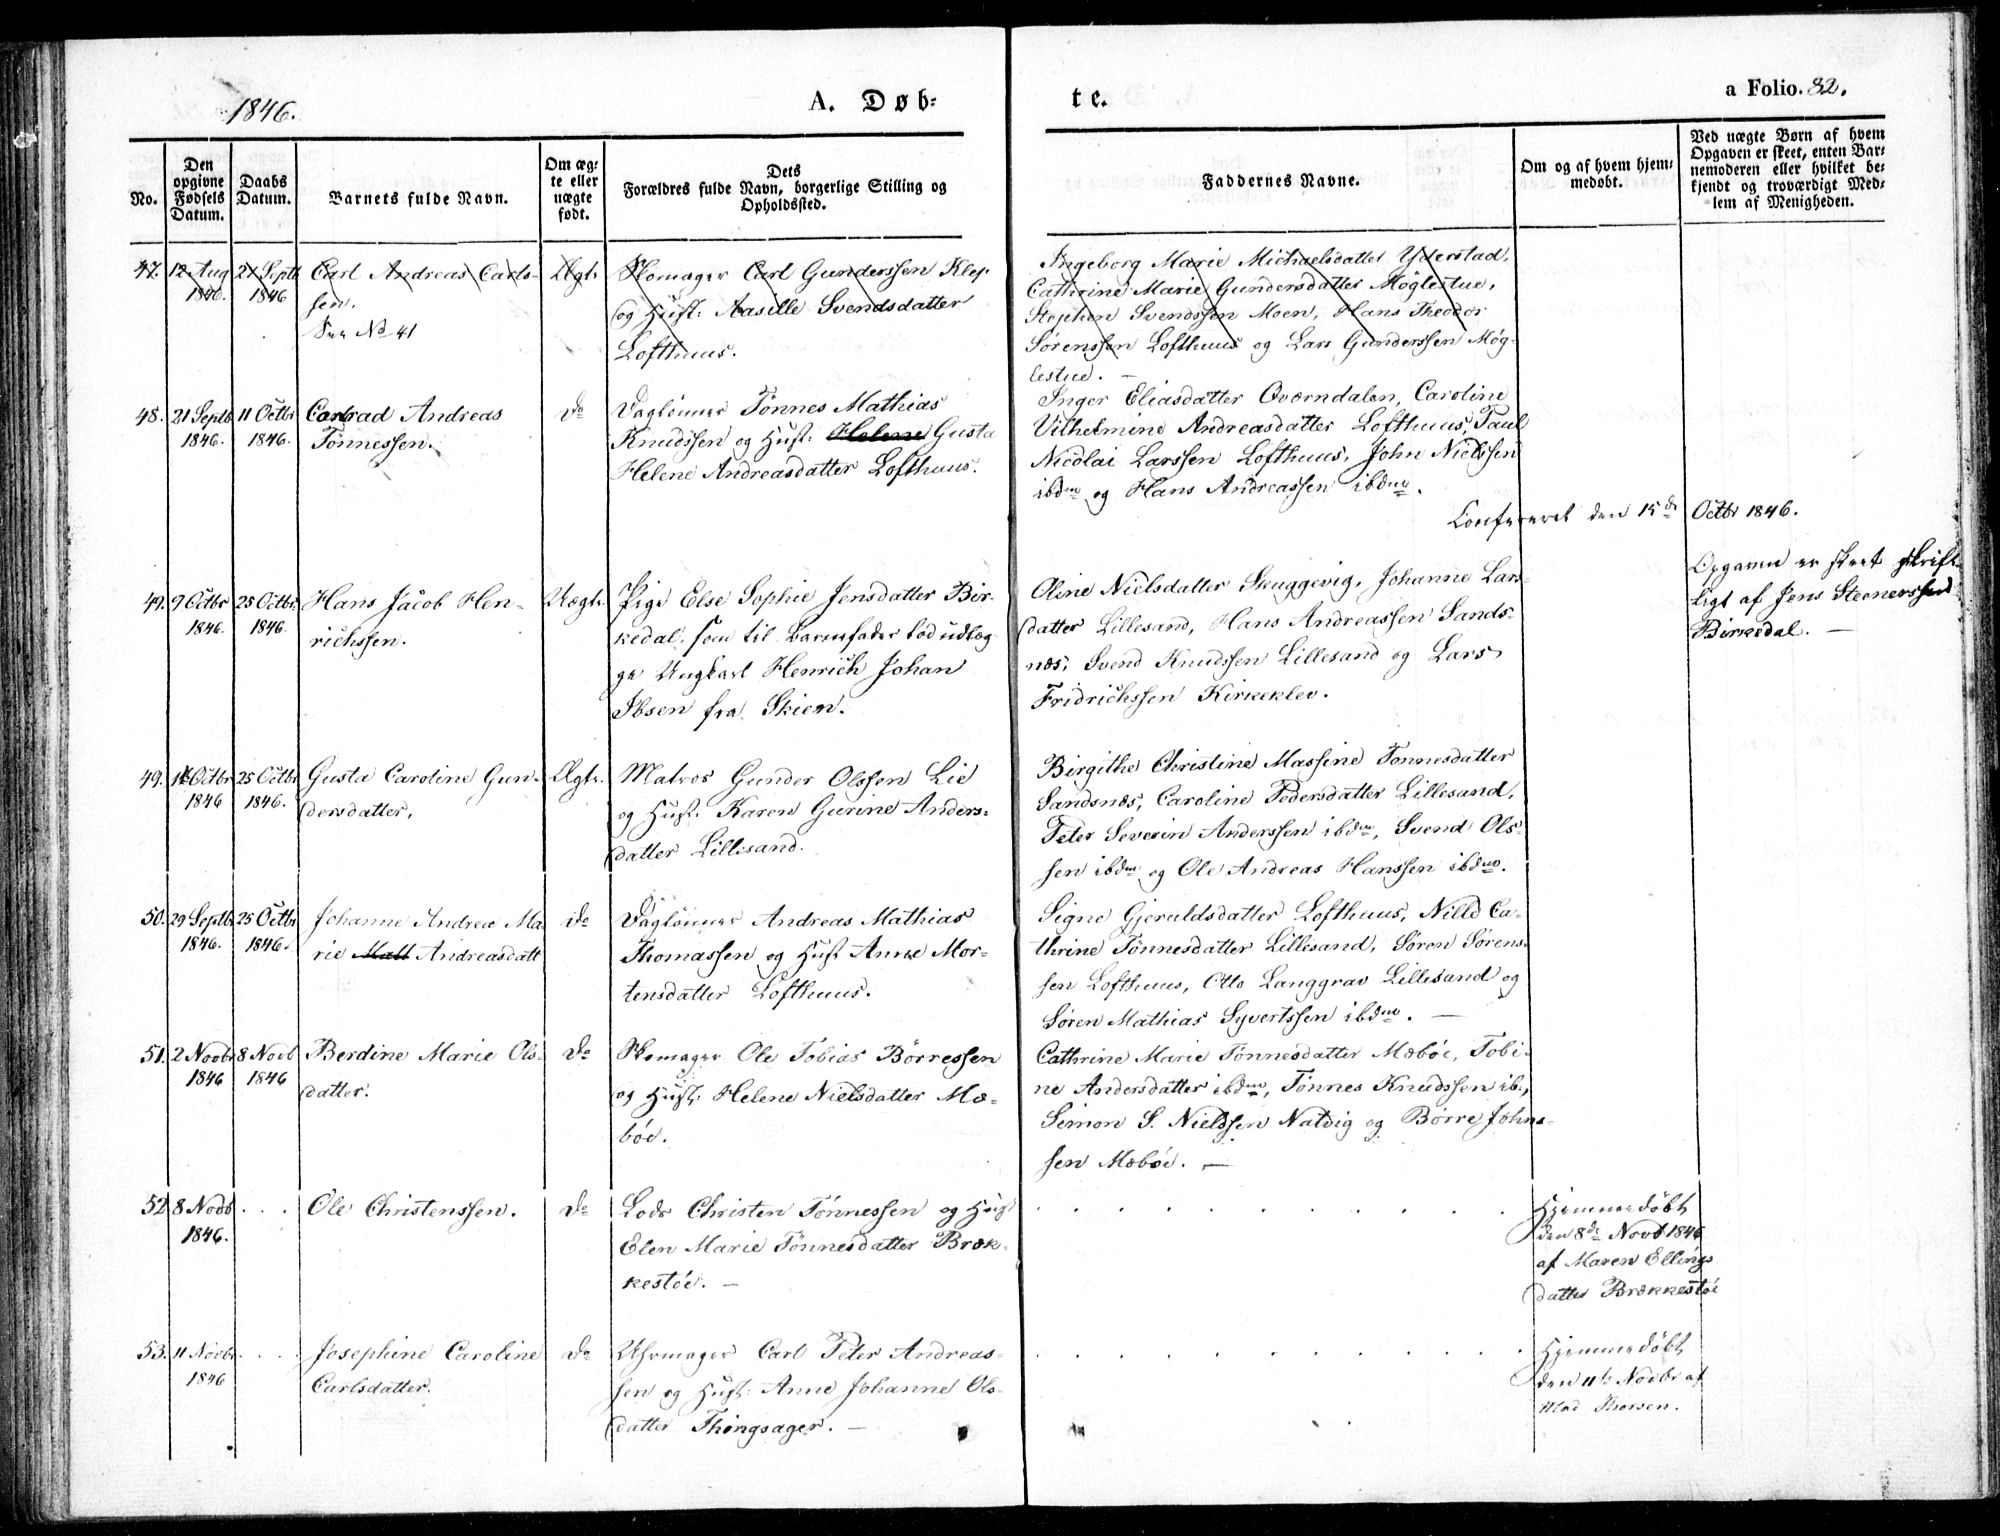 1846.
A. Døb-
te.
a Folio. 82.
No.
Den opgivne Fødsels Datum.
Daabs Datum.
Barnets fulde Navn.
Om ægte eller nægte født.
Dets
Forældres fulde Navn, borgerlige Stilling og
Opholdssted.
Faddernes Navne.
Om og af hvem hjem-
medøbt.
Ved uægte Børn af hvem
Opgaven er skeet, enten Bar-
nemoderen eller hvilket be-
kjendt og troværdigt Med-
lem af Menigheden.
47. 12 Aug 1846. 27 Septb 1846
Carl Andreas Carls-
sen.
See No 41
Ægte
Skomager Carl Gunderssen Klep
og Hust: Aasille Svendsdatter
Lofthuus.
Ingeborg Marie Michaelsdatter Ytterstad,
Cathrine Marie Gundersdatter Møglestue,
Stephen Svendssen Moen, Hans Theodor
Sørenssen Lofthuus og Lars Gunderssen Møg-
lestue. —
48. 21 Septb 1846. 11 Octbr 1846.
Conrad Andreas
Tønnessen.
do
Daglønner Tønnes Mathias
Knudssen og Hust: Helene Gusta
Helene Andreasdatter Lofthuus.
Inger Eliasdatter Qværndalen, Caroline
Vilhelmine Andreasdatter Lofthuus, Paul
Nicolai Larssen Lofthuus, John Nielssen
ibdm og Hans Andreassen ibdm.
Confereret den 15de Octbr 1846.
49. 9 Octbr 1846. 25 Octbr. 1846.
Hans Jacob Hen-
richssen.
Uægte.
Pige Else Sophie Jensdatter Bir-
kedal, som til Barnefader lod udlæg-
ge Ungkarl Henrich Johan
Ibsen fra Skien.
Oline Nielsdatter Skuggevig, Johanne Lars-
datter Lillesand, Hans Andreassen Sands-
næs, Svend Knudssen Lillesand og Lars
Fridrichssen Kirkeklev.
Opgaven er skeet skrift-
ligt af Jens Steenerssen
Birkedal. —
49. 1 Octbr 1846 25 Octbr 1846.
Gusta Caroline Gun-
dersdatter,
Ægte.
Matros Gunder Olssen Lie
og Hust. Karen Gurine Anders-
datter Lillesand.
Birgithe Christine Massine Tønnesdatter
Sandsnæs, Caroline Pedersdatter Lillesand,
Peter Severin Anderssen ibdm, Svend Ols-
sen ibdm og Ole Andreas Hanssen ibdm.
50. 29 Septb 1846. 25 Octbr 1846.
Johanne Andrea Ma-
rie Matt Andreasdatt
do
Daglønner Andreas Mathias
Thomassen og Hust Anne Mor-
tensdatter Lofthuus.
Signe Gjeruldsdatter Lofthuus, Nilld Ca-
thrine Tønnesdatter Lillesand, Søren Sørens-
sen Lofthuus, Otto Langgrav Lillesand og
Søren Mathias Syvertssen ibdm. —
51. 2 Novbr 1846 8 Novb 1846
Berdine Marie Ols-
datter.
do
Skomager Ole Tobias Børressen
og Hust: Helene Nielsdatter Mæ-
bøe.
Cathrine Marie Tønnesdatter Mæbøe, Tobi-
ne Andersdatter ibdm, Tønnes Knudssen ib.,
Simon S. Nielssen Natvig og Børre Johns-
sen Mæbøe. —
52 8 Novb 1846. . . .
Ole Christenssen.
do
Lods Christen Tønnessen og Hust
Elen Marie Tønnesdatter Bræk-
kestøe. —
Hjemmedøbt
den 8de Novb 1846
af Maren Ellings
datter Brækkestøe
53. 11 Novbr 1846 . . .
Josephine Caroline
Carlsdatter.
do
Uhrmager Carl Peter Andreas-
sen og Hust: Anne Johanne Ols-
datter Thingsager. —
Hjemmedøbt
den 11te Novbr af
Mad Thorsen.